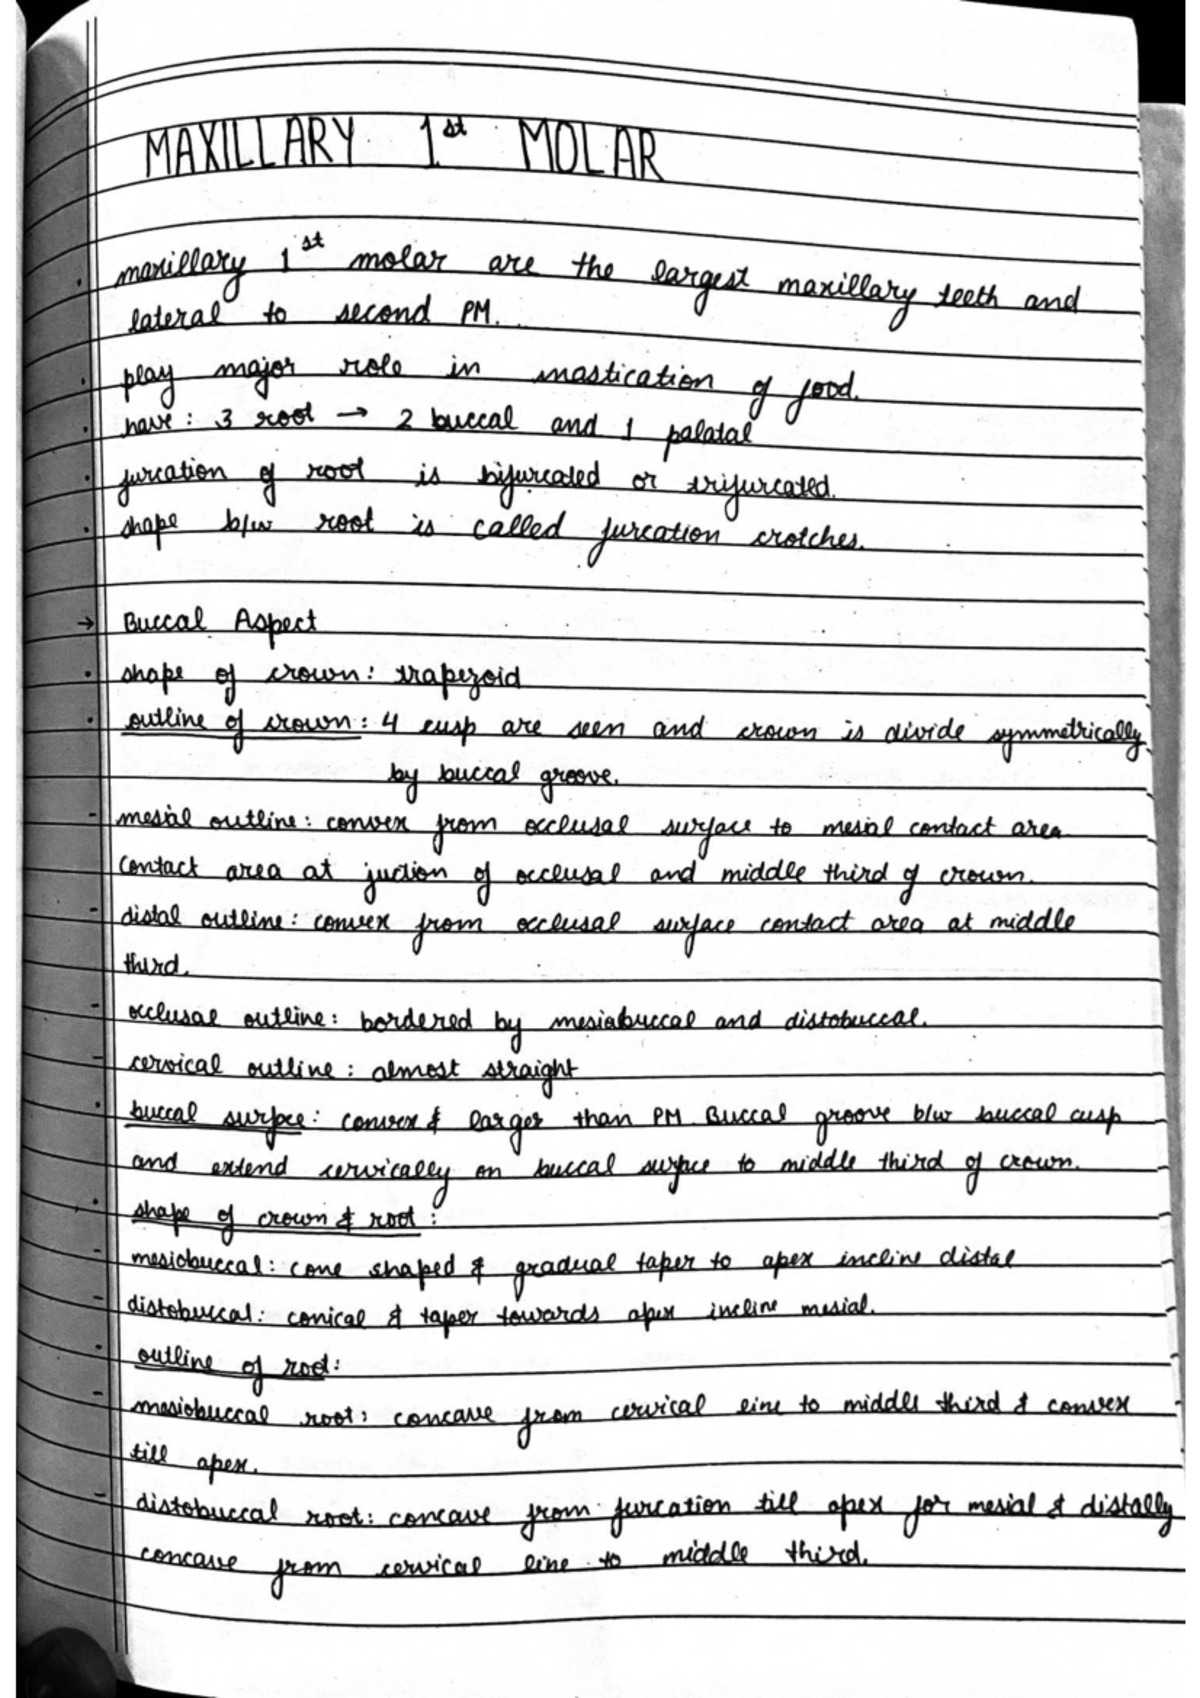 MAXILLARY 1st MOLAR
maxillary 1st molar are the largest maxillary teeth and
lateral to second PM.
play major role in mastication of food.
have : 3 root → 2 buccal and 1 palatal
furcation of root is bifurcated or trifurcated.
shape b/w root is called furcation crotches.
→ Buccal Aspect
• shape of crown : trapezoid
• outline of crown : 4 cusp are seen and crown is divide symmetrically
by buccal groove.
- mesial outline : convex from occlusal surface to mesial contact area
contact area at juction of occlusal and middle third of crown.
- distal outline : convex from occlusal surface contact area at middle
third.
- occlusal outline : bordered by mesiobuccal and distobuccal.
- cervical outline : almost straight
• buccal surface : convex & larger than PM. Buccal groove b/w buccal cusp
and extend cervically on buccal surface to middle third of crown.
• shape of crown & root :
- mesiobuccal : cone shaped & gradual taper to apex incline distal
- distobuccal : conical & taper towards apex incline mesial.
• outline of root :
- mesiobuccal root : concave from cervical line to middle third & convex
till apex.
- distobuccal root : concave from furcation till apex for mesial & distally
concave from cervical line to middle third.